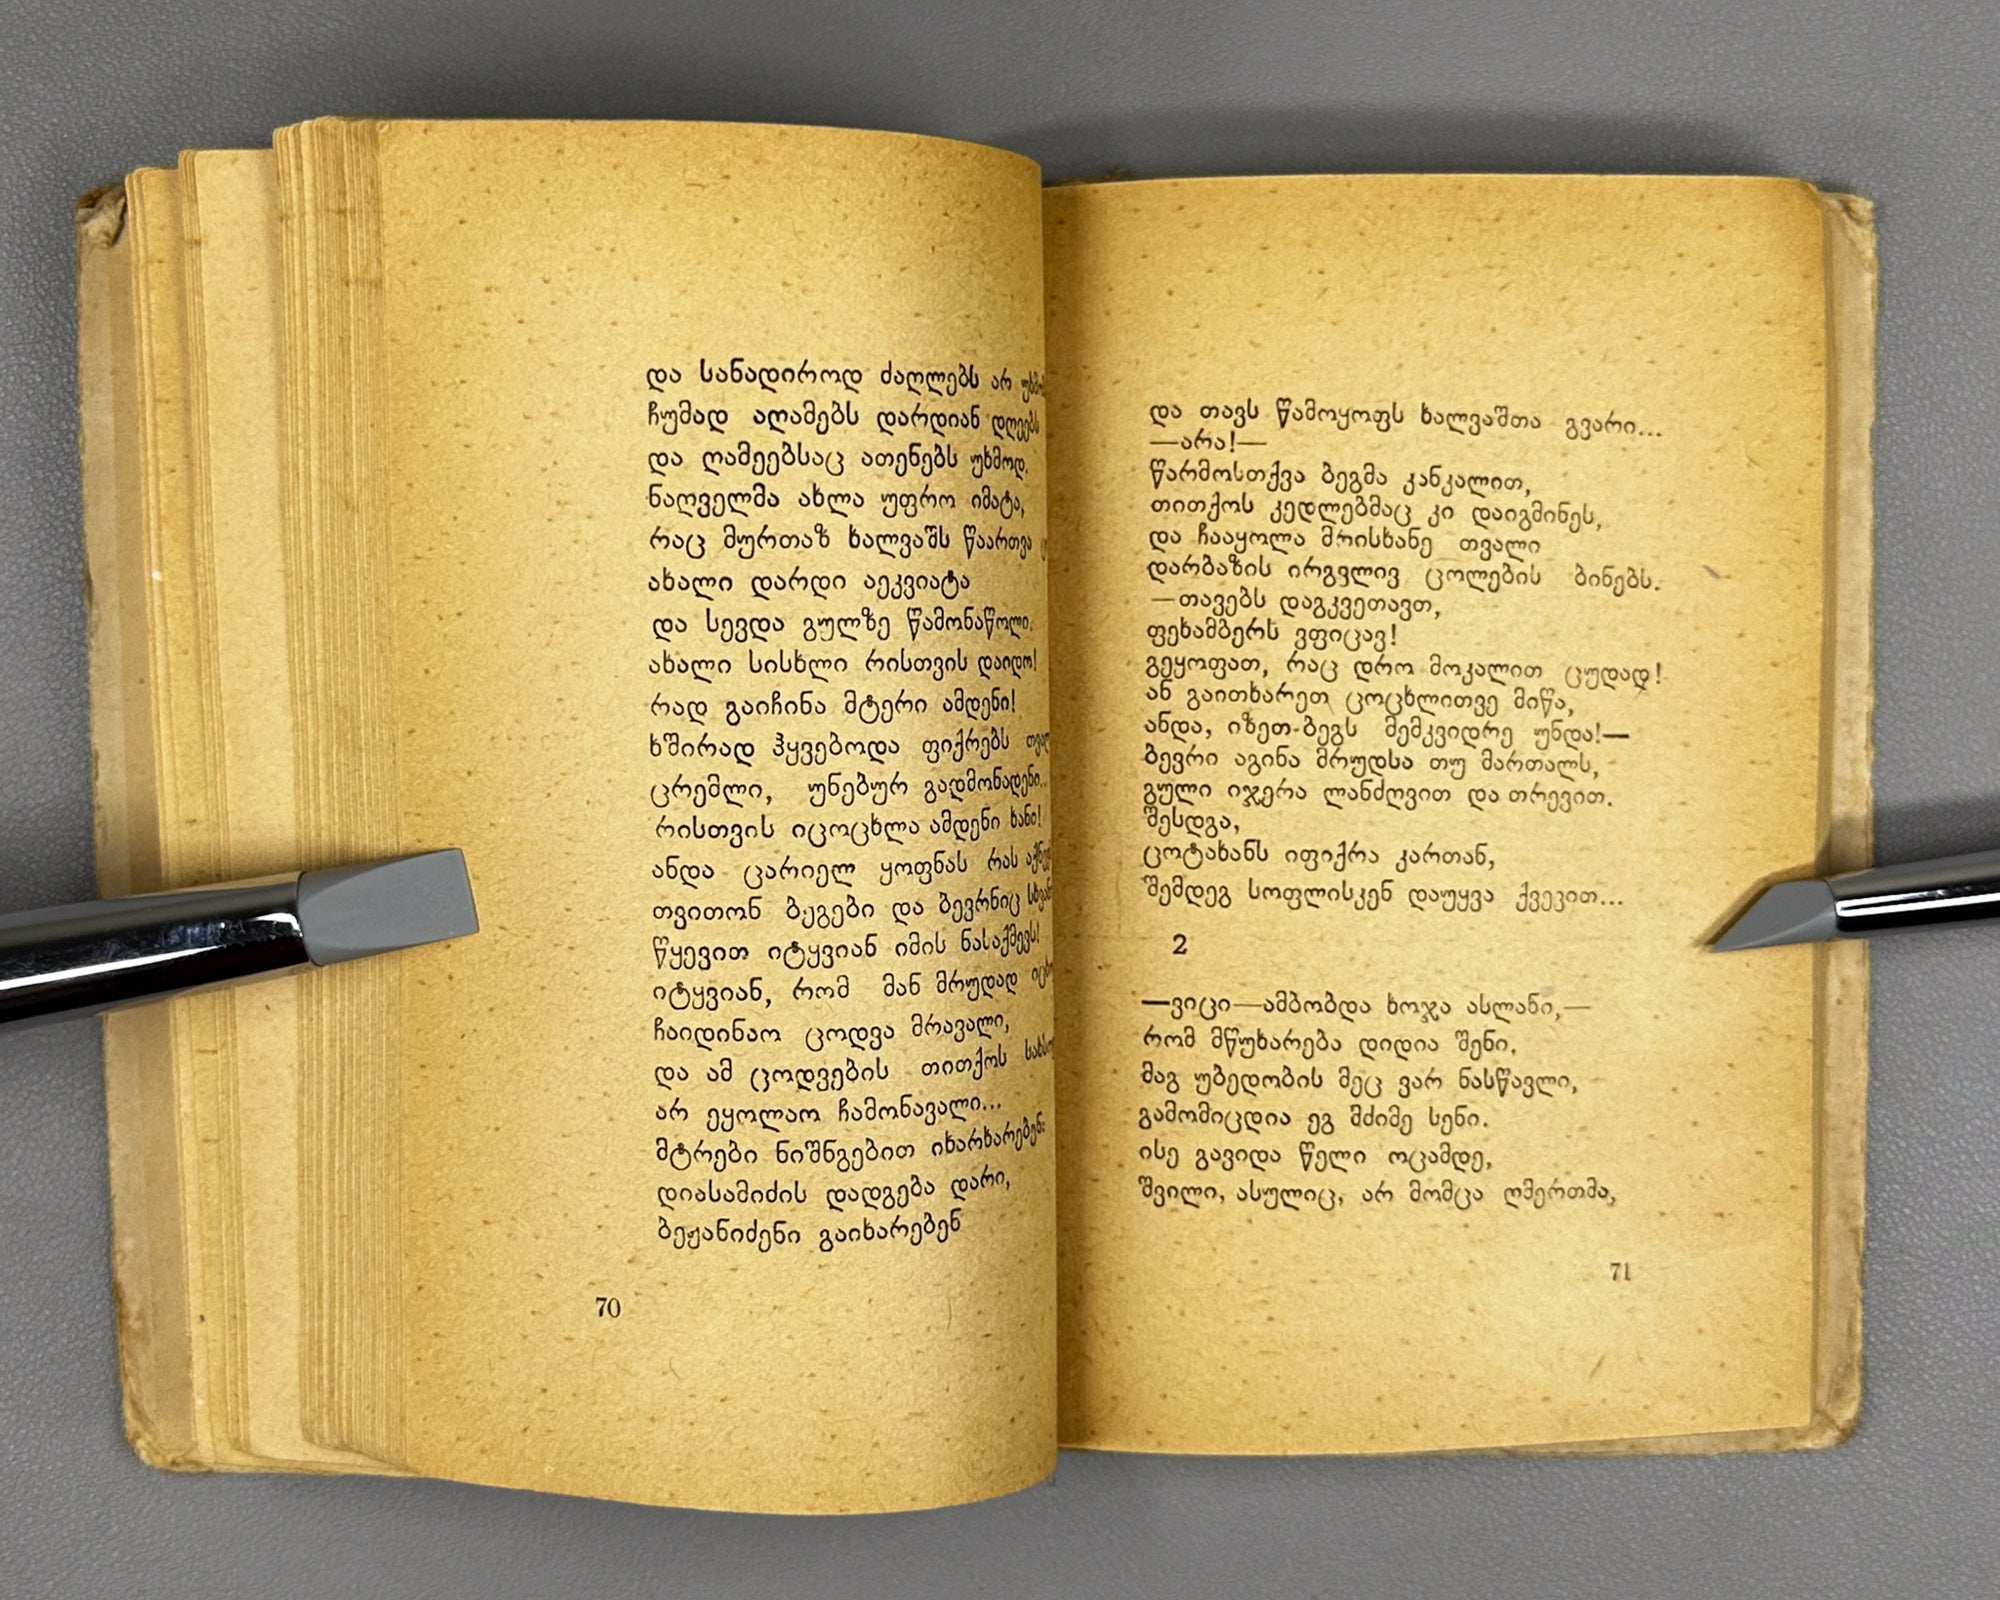 და სანადიროდ ძაღლებს არ
ჩუმად აღამებს დარდიან დღეებს
და ღამეებსაც ათენებს უხმოდ.
ნაღველმა ახლა უფრო იმატა,
რაც მურთაზ ხალვაშს წაართვა
ახალი დარდი აეკვიატა
და სევდა გულზე წამონაწოლი.
ახალი სისხლი რისთვის დაიდო!
რად გაიჩინა მტერი ამდენი!
ხშირად ჰყვებოდა ფიქრებს
ცრემლი, უნებურ გადმონადენი...
რისთვის იცოცხლა ამდენი ხანი!
ანდა ცარიელ ყოფნას რას
თვითონ ბეგები და ბევრნიც
წყევით იტყვიან იმის ნასაქმევს!
იტყვიან, რომ მან მრუდად
ჩაიდინაო ცოდვა მრავალი,
და ამ ცოდვების თითქოს
არ ეყოლაო ჩამონავალი...
მტრები ნიშნგებით იხარხარებენ:
დიასამიძის დადგება დარი,
ბეჟანიძენი გაიხარებენ
70
და თავს წამოყოფს ხალვაშთა გვარი...
—არა!—
წარმოსთქვა ბეგმა კანკალით,
თითქოს კედლებმაც კი დაიგმინეს,
და ჩააყოლა მრისხანე თვალი
დარბაზის ირგვლივ ცოლების ბინებს.
—თავებს დაგკვეთავთ,
ფეხამბერს ვფიცავ!
გეყოფათ, რაც დრო მოკალით ცუდად!
ან გაითხარეთ ცოცხლითვე მიწა,
ანდა, იზეთ-ბეგს მემკვიდრე უნდა!—
ბევრი აგინა მრუდსა თუ მართალს,
გული იჯერა ლანძღვით და თრევით.
შესდგა,
ცოტახანს იფიქრა კართან,
შემდეგ სოფლისკენ დაუყვა ქვევით...
2
—ვიცი—ამბობდა ხოჯა ასლანი,—
რომ მწუხარება დიდია შენი.
მაგ უბედობის მეც ვარ ნასწავლი,
გამომიცდია ეგ მძიმე სენი.
ისე გავიდა წელი ოცამდე,
შვილი, ასულიც, არ მომცა ღმერთმა,
71